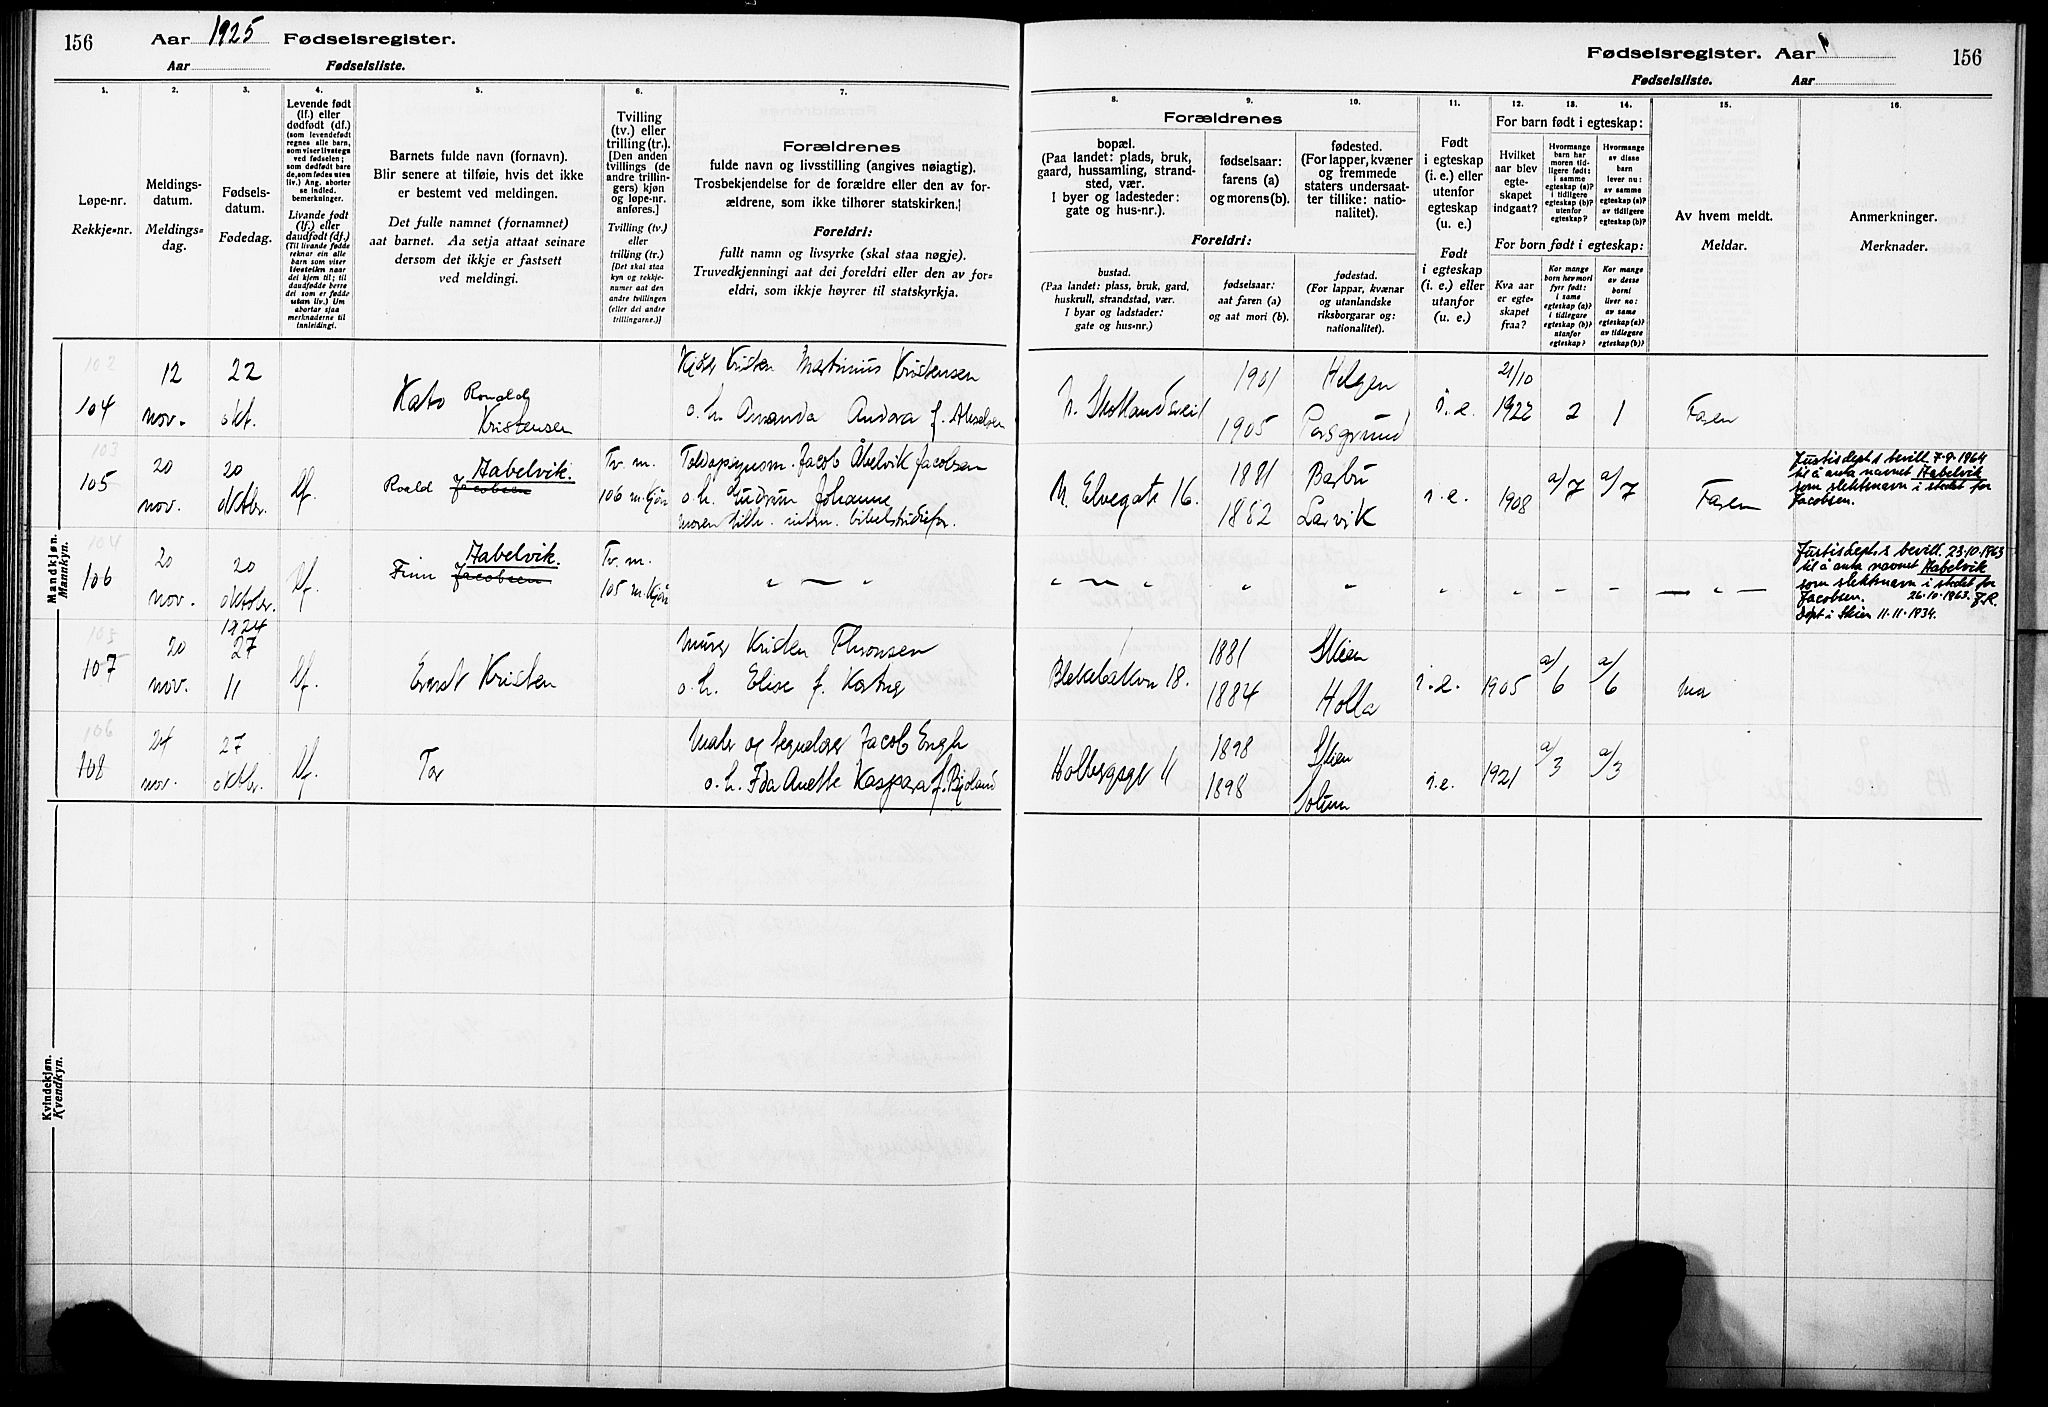 156 Aar 1925 Fødselsregister.
Aar Fødselsliste.
Fødselsregister. Aar 156
Fødselsliste. Aar
1. 2. 3. 4. 5. 6. 7.
8. 9. 10. 11. 12. 13. 14. 15. 16.
Løpe-nr.
Rekkje-nr.
Meldings-
datum.
Meldings-
dag.
Fødsels-
datum.
Fødedag.
Levende født
(lf.) eller
dødfødt (df.)
(som levendefødt
regnes alle barn,
som viser livstegn
ved fødselen;
som dødfødt bare
de, som fødes uten
liv.) Ang. aborter
se indled.
bemerkninger.
Livande født
(lf.) eller
daudfødt (df.)
(Til livande fødde
reknar ein alle
barn som viser
livsteikn naar
dei kjem til; til
daudfødde berre
dei som er fødde
utan liv.) Um
abortar sjaa
merknaderne til
innleidingi.
Barnets fulde navn (fornavn).
Blir senere at tilføie, hvis det ikke
er bestemt ved meldingen.
Det fulle namnet (fornamnet)
aat barnet. Aa setja attaat seinare
dersom det ikkje er fastsett
ved meldingi.
Tvilling
(tv.) eller
trilling (tr.)
[Den anden
tvillings (de
andre trillin-
gers) kjøn
og løpe-nr.
anføres.]
Tvilling (tv.)
eller
trilling (tr.)
[Det skal staa
kyn og rekkje-
numer aat den
andre tvillingen
(eller dei andre
trillingarne.)]
Forældrenes
fulde navn og livsstilling (angives nøiagtig).
Trosbekjendelse for de forældre eller den av for-
ældrene, som ikke tilhører statskirken.
Foreldri:
fullt namn og livsyrke (skal staa nøgje).
Truvedkjenningi aat dei foreldri eller den av for-
eldri, som ikkje høyrer til statskyrkja.
Forældrenes
bopæl.
(Paa landet: plads, bruk,
gaard, hussamling, strand-
sted, vær.
I byer og ladesteder:
gate og hus-nr.).
fødselsaar:
farens (a)
og morens (b).
fødested.
(For lapper, kvæner
og fremmede
staters undersaat-
ter tillike: natio-
nalitet).
Foreldri:
bustad.
(Paa landet: plass, bruk, gard,
huskrull, strandstad, vær.
I byar og ladstader:
gate og hus-nr.)
fødselsaar:
aat faren (a)
og aat mori (b).
fødestad.
(For lappar, kvænar
og utanlandske
riksborgarar og:
nationalitet).
Født
i egteskap
(i. e.) eller
utenfor
egteskap
(u. e.)
Født
i egteskap
(i. e.) eller
utanfor
(u. e.)
For barn født i egteskap:
Hvilket
aar blev
egte-
skapet
indgaat?
Hvormange
barn har
moren tid-
ligere født:
i samme
egteskap (a)?
i tidligere
egteskap (b)?
utenfor
egteskap?
Hvormange
av disse
barn
lever nu:
av samme
egteskap (a)?
av tidligere
egteskap (b)?
For born født i egteskap:
Kva aar
er egte-
skapet
fraa?
Kor mange
born hev mori
fyrr født:
i same
egteskap (a)?
i tidlegare
egteskap (b)?
utanfor
egteskap?
Kor mange
av desse
borni
liver no:
av same
egteskap (a)?
av tidlegare
egteskap (b)?
Av hvem meldt.
Meldar.
Anmerkninger.
Merknader.
Mandkjøn.
Mannkyn.
102
104 12 nov. 22 okt. Kato Ronald Kristensen
Kristen Martinius Kristensen
o. h. Amanda Andora f. Akselsen
N. Skotlandsvei 1901 1905 Helgen Porsgrund i.e. 21/10 1922 2 1 Faren
103
105 20 nov. 20 oktbr. lf. Roald Jacobsen Aabelvik. Tv. m. 106 m. kjøn
Jacob Åbelvik Jacobsen
o. h. Gudrun Johanne
N. Elvegate 16. 1881 1882 Barbu Larvik i.e. 1908 a/7 a/7 Faren
Justisdept.s bevill. 7-9-1964
til å anta navnet Aabelvik
som slektsnavn i stedet for
Jacobsen.
104
106 20 nov. 20 oktober. lf. Finn Jacobsen Aabelvik. Tv. m. 105 m. kjøn
" — "
Justisdept.s bevill. 23.10.1963
til å anta navnet Aabelvik
som slektsnavn i stedet for
Jacobsen. 26.10.1963. J.R.
Døpt i Skien 11.11.1934.
105
107 20 nov. 1924 27 11 lf. Ernst Kristen
Murer Kristen Thronsen
o. h. Elise f.
18. 1881 1884 Skien Holla i.e. 1905 a/6 a/6 Mor
106
108 24 nov. 27 oktbr. lf. Tor
Maler og tegnelærer Jacob Engh
o. h. Ida Anette Kaspara f. Bjoland
Holbergsgt 11 1898 1898 Skien Solum i.e. 1921 a/3 a/3
Kvindekjøn.
Kvendkyn.